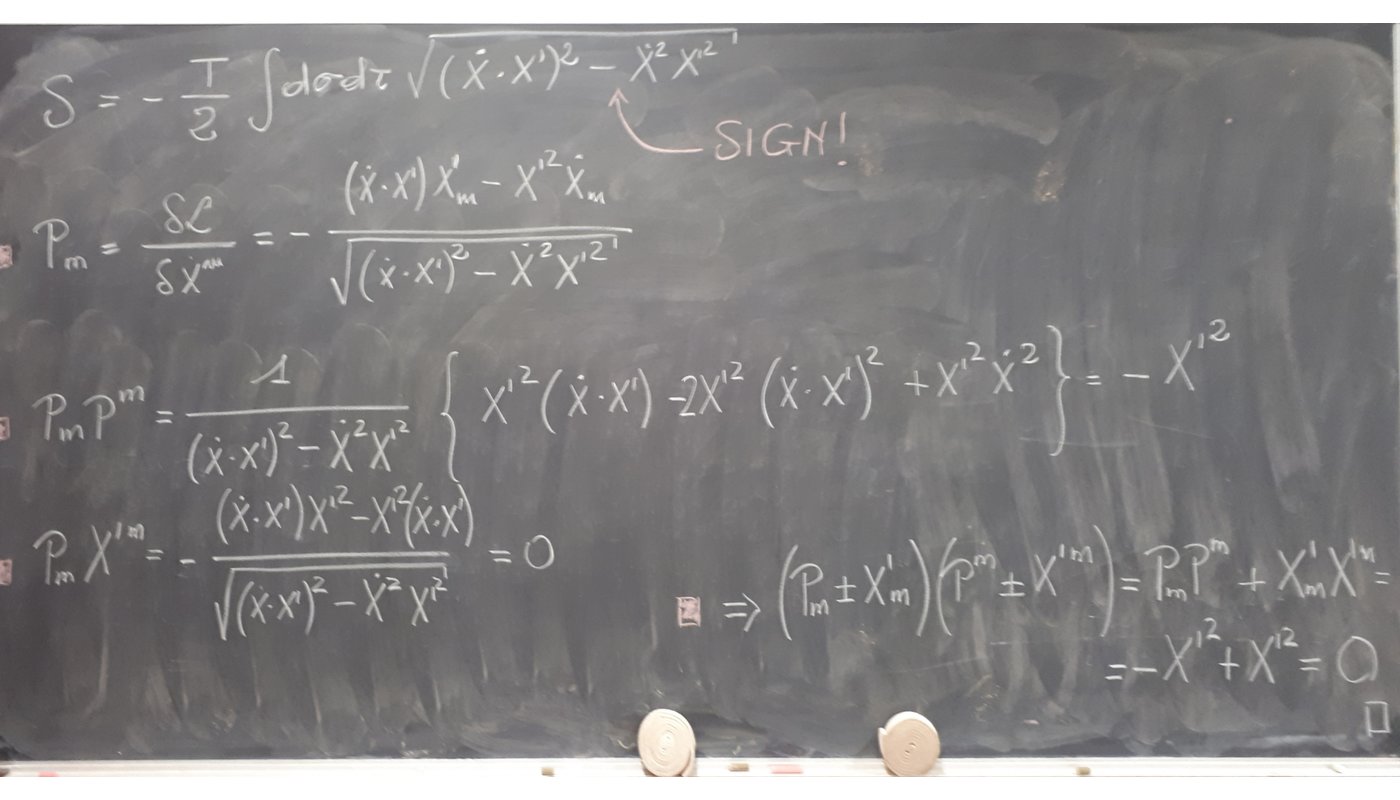 S = - T/2 ∫dσdτ √((Ẋ·X')² - Ẋ²X'²)
SIGN!
P_m = δℒ/δẊ^m = - ((Ẋ·X')X'_m - X'²Ẋ_m)/√((Ẋ·X')² - Ẋ²X'²)
P_m P^m = 1/((Ẋ·X')² - Ẋ²X'²) {X'²(Ẋ·X') -2X'²(Ẋ·X')² + X'²Ẋ²} = - X'²
P_m X'^m = - ((Ẋ·X')X'² - X'²(Ẋ·X'))/√((Ẋ·X')² - Ẋ²X'²) = 0
⇒ (P_m ± X'_m)(P^m ± X'^m) = P_m P^m + X'_m X'^m =
= -X'² + X'² = 0
□